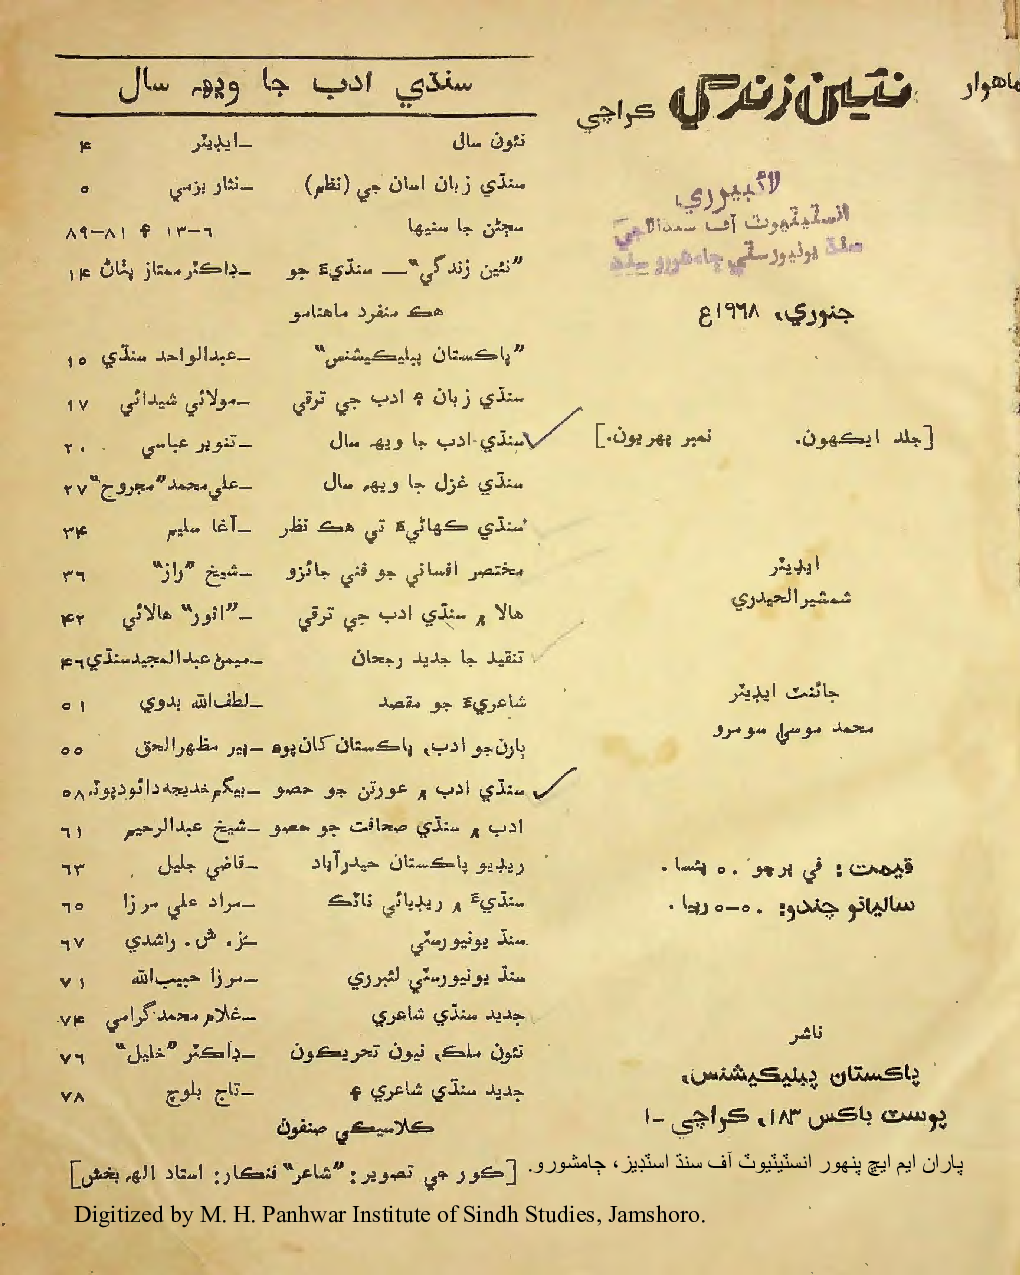 ماهوار
نئين زندگي ڪراچي
لائبريري
انسٽيٽيوٽ آف سنڌالاجي
سنڌ يونيورسٽي ڄامشورو سنڌ
جنوري، ١٩٦٨ع
[جلد ايڪهون. نمبر پهريون.]
ايڊيٽر
شمشيرالحيدري
جائنٽ ايڊيٽر
محمد موسيٰ سومرو
قيمت: في پرچو ٥٠. پئسا.
ساليانو چندو: ٥٠-٥ رپيا.
ناشر
پاڪستان پبليڪيشنس،
پوسٽ باڪس ١٨٣، ڪراچي -١
سنڌي ادب جا ويهه سال
نئون سال —ايڊيٽر ۴
سنڌي زبان اسان جي (نظم) —نثار بزمي ٥
سڄڻن جا سنيها ٦-١٣ ۽ ٨١-٨٩
”نئين زندگي“— سنڌيءَ جو —ڊاڪٽر ممتاز پٺاڻ ١۴
هڪ منفرد ماهنامو
”پاڪستان پبليڪيشنس“ —عبدالواحد سنڌي ١٥
سنڌي زبان ۽ ادب جي ترقي —مولائي شيدائي ١٧
سنڌي ادب جا ويهه سال —تنوير عباسي ٢٠
سنڌي غزل جا ويهه سال —علي محمد ”مجروح“ ٢٧
سنڌي ڪهاڻيءَ تي هڪ نظر —آغا سليم ٣۴
مختصر افساني جو فني جائزو —شيخ ”راز“ ٣٦
هالا ۾ سنڌي ادب جي ترقي —”انور“ هالائي ۴٢
تنقيد جا جديد رجحان —ميمڻ عبدالمجيد سنڌي ۴٦
شاعريءَ جو مقصد —لطف الله بدوي ٥١
ٻارن جو ادب، پاڪستان کان پوءِ —پير مظهرالحق ٥٥
سنڌي ادب ۾ عورتن جو حصو —بيگم خديجه دائودپوٽه ٥٨
ادب ۾ سنڌي صحافت جو حصو —شيخ عبدالرحيم ٦١
ريڊيو پاڪستان حيدرآباد —قاضي جليل ٦٣
سنڌيءَ ۾ ريڊيائي ناٽڪ —مراد علي مرزا ٦٥
سنڌ يونيورسٽي —ز. ش. راشدي ٦٧
سنڌ يونيورسٽي لئبرري —مرزا حبيب الله ٧١
جديد سنڌي شاعري —غلام محمد گرامي ٧۴
نئون ملڪ، نيون تحريڪون —ڊاڪٽر ”خليل“ ٧٦
جديد سنڌي شاعري ۽ —تاج بلوچ ٧٨
ڪلاسيڪي صنفون
[ڪور جي تصوير: ”شاعر“ فنڪار: استاد الهه بخش]
پاران ايم ايڇ پنهور انسٽيٽيوٽ آف سنڌ اسٽڊيز، ڄامشورو.
Digitized by M. H. Panhwar Institute of Sindh Studies, Jamshoro.